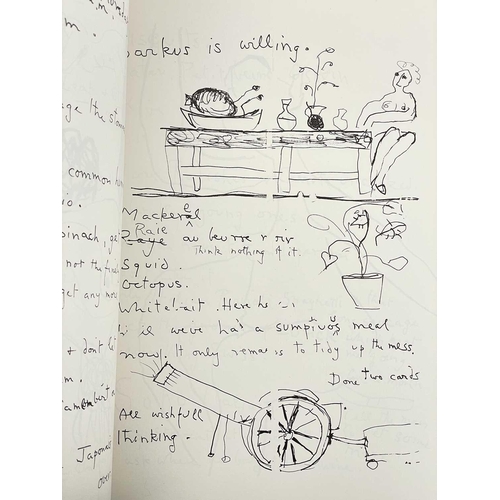 m.
arkus is willing.
age the
common
io.
pinash, ge
not the
get any mo
& dont
m.
Japan
over
Mackerel
e
Raie
Raye au beurre noir
Think nothing of it.
Squid.
Octopus.
Whitebait. Here he
weve had a sumpivos meal
now. It only remains to tidy up the mess.
Done two cards
All wishfull
thinking.